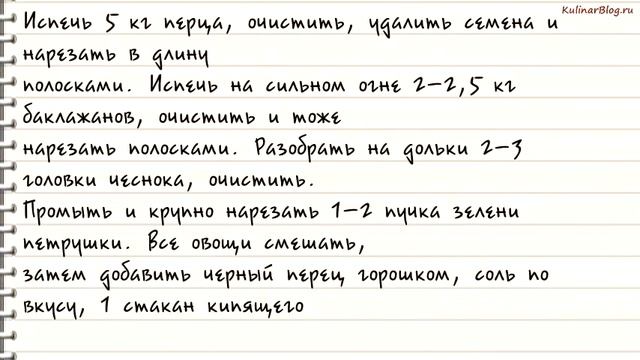 KulinarBlog.ru
Испечь 5 кг перца, очистить, удалить семена и
нарезать в длину
полосками. Испечь на сильном огне 2-2,5 кг
баклажанов, очистить и тоже
нарезать полосками. Разобрать на дольки 2-3
головки чеснока, очистить.
Промыть и крупно нарезать 1-2 пучка зелени
петрушки. Все овощи смешать,
затем добавить черный перец горошком, соль по
вкусу, 1 стакан кипящего